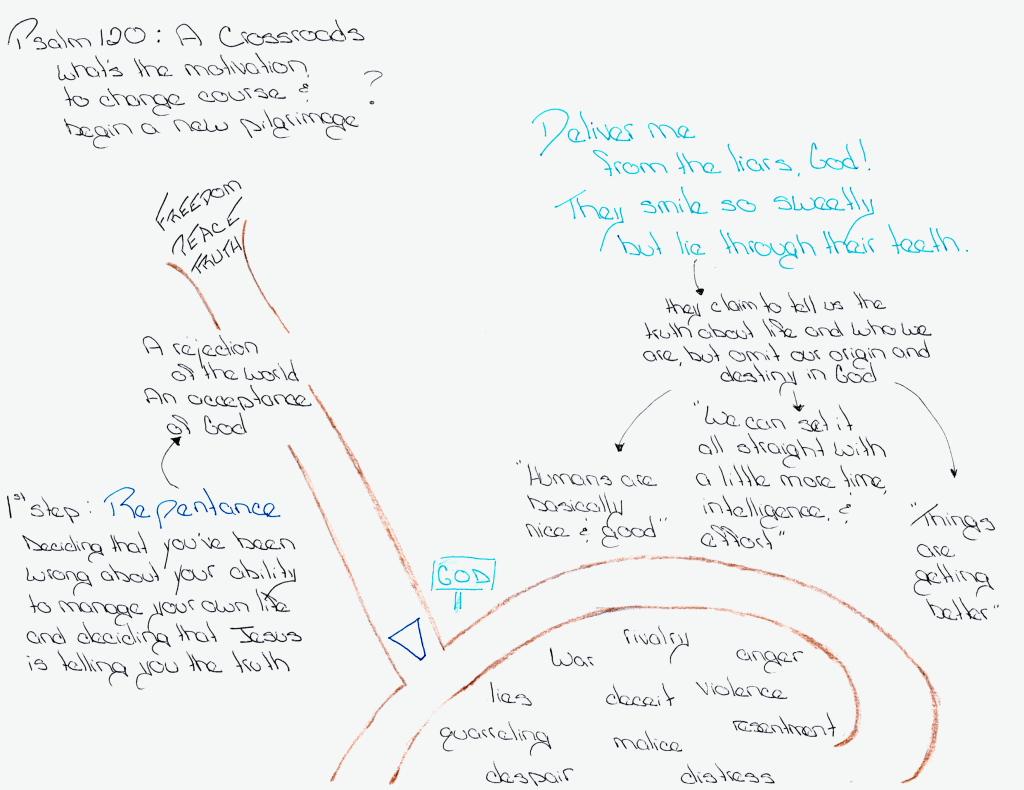 Psalm 120: A Crossroads
what's the motivation
to change course &
begin a new pilgrimage ?
Deliver me
from the liars, God!
They smile so sweetly
but lie through their teeth.
they claim to tell us the
truth about life and who we
are, but omit our origin and
destiny in God
"Humans are
basically
nice & good"
"We can set it
all straight with
a little more time,
intelligence, &
effort"
"Things
are
getting
better"
FREEDOM
PEACE
TRUTH
A rejection
of the world
An acceptance
of God
1st step: Repentance
Deciding that you've been
wrong about your ability
to manage your own life
and deciding that Jesus
is telling you the truth
GOD
rivalry
war
anger
lies
deceit
violence
resentment
quarreling
malice
despair
distress